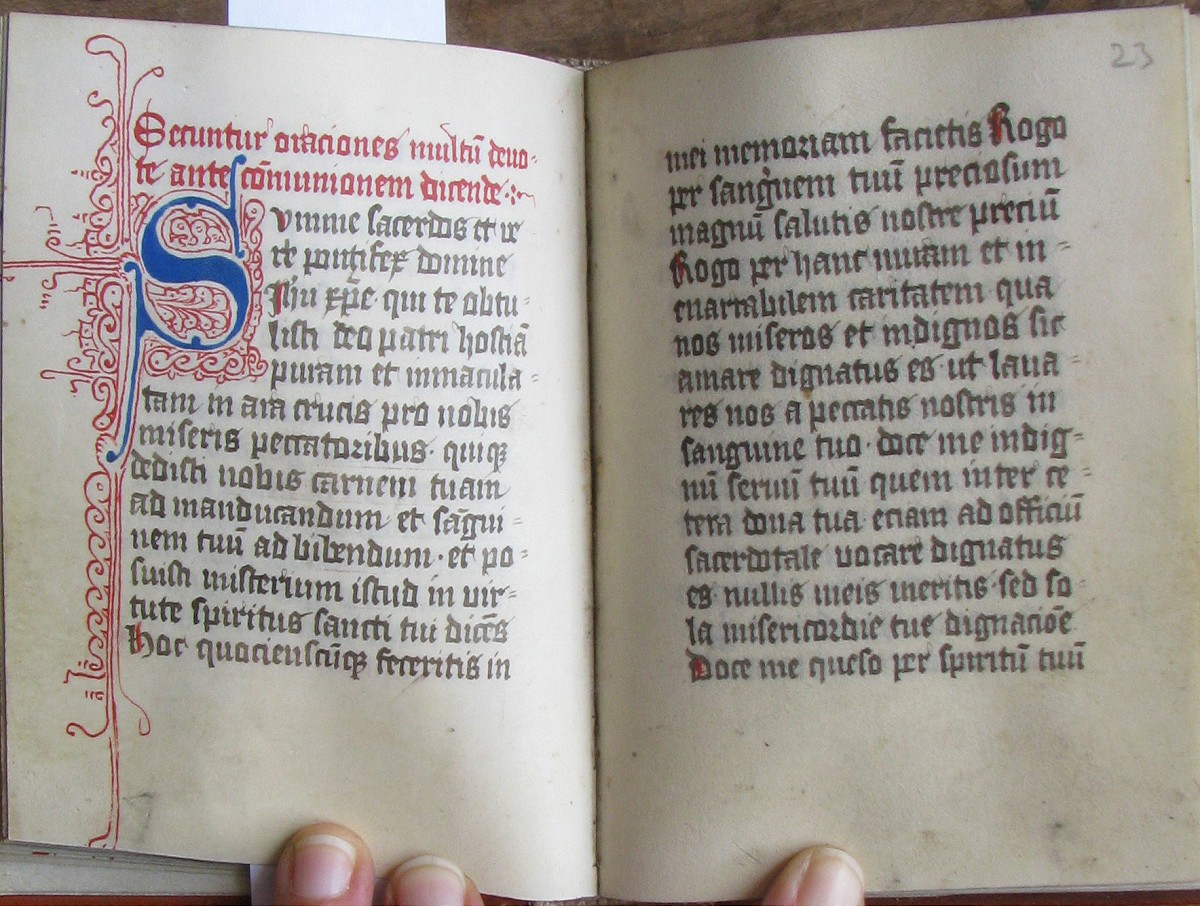 Secuntur oraciones multū deuo-
te ante cōmunionem dicende :~
Summe sacerdos et ue
re pontifex domine
Ihu xp̄e · qui te obtu-
listi deo patri hostiā
puram et immacula-
tam in ara crucis pro nobis
miseris peccatoribus · quiqꝫ
dedisti nobis carnem tuam
ad manducandum et sāgui-
nem tuū ad bibendum · et po-
suisti misterium istud in vir-
tute spiritus sancti tui dicēs
Hoc quocienscūqꝫ feceritis in
23
mei memoriam facietis Rogo
per sanguinem tuū preciosum
magnū salutis nostre preciū
Rogo per hanc miram et in-
enarrabilem caritatem qua
nos miseros et indignos sic
amare dignatus es · ut laua-
res nos a peccatis nostris in
sanguine tuo · doce me indig-
nū seruū tuū quem inter ce-
tera dona tua eciam ad officiū
sacerdotale vocare dignatus
es · nullis meis meritis · sed so-
la misericordie tue dignacioē
Doce me queso per spiritū tuū